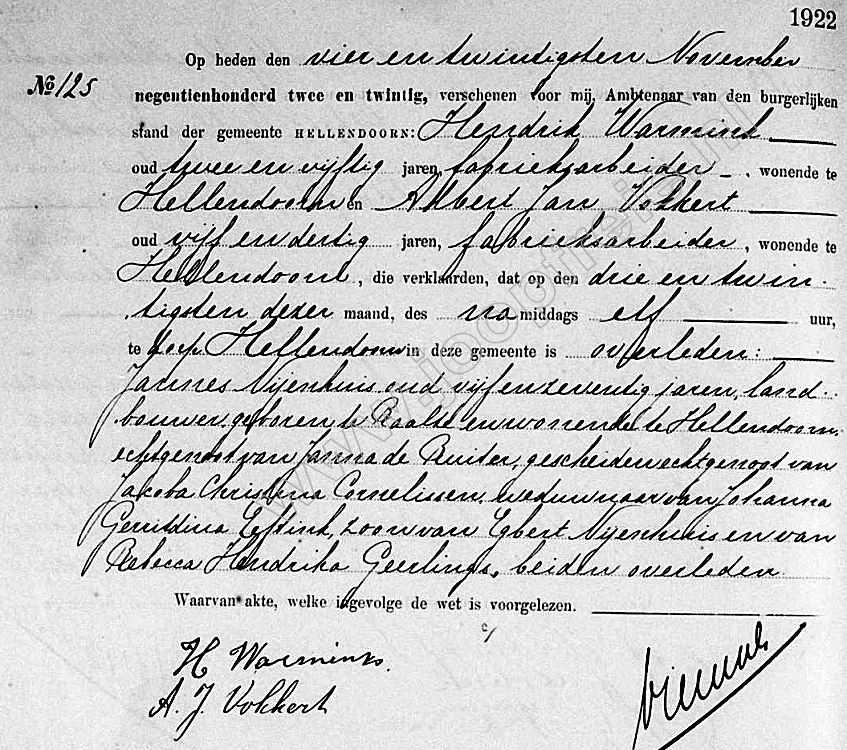 1922
Op heden den vier en twintigsten November
No 125
negentienhonderd twee en twintig, verschenen voor mij, Ambtenaar van den burgerlijken
stand der gemeente HELLENDOORN: Hendrik Warmink
oud twee en vijftig jaren, fabrieksarbeider, wonende te
Hellendoorn en Albert Jan Vokkert
oud vijf en dertig jaren, fabrieksarbeider, wonende te
Hellendoorn, die verklaarden, dat op den drie en twin-
tigsten dezer maand, des na middags elf uur,
te dorp Hellendoorn in deze gemeente is overleden:
Jannes Nijenhuis oud vijfenzeventig jaren, land-
bouwer, geboren te Raalte en wonende te Hellendoorn,
echtgenoot van Janna de Ruiter, gescheiden echtgenoot van
Jacoba Christina Cornelissen, weduwnaar van Johanna
Gerritdina Eftink, zoon van Egbert Nijenhuis en van
Rebecca Hendrika Geerlings, beiden overleden
Waarvan akte, welke ingevolge de wet is voorgelezen.
H Warmink.
A. J. Vokkert